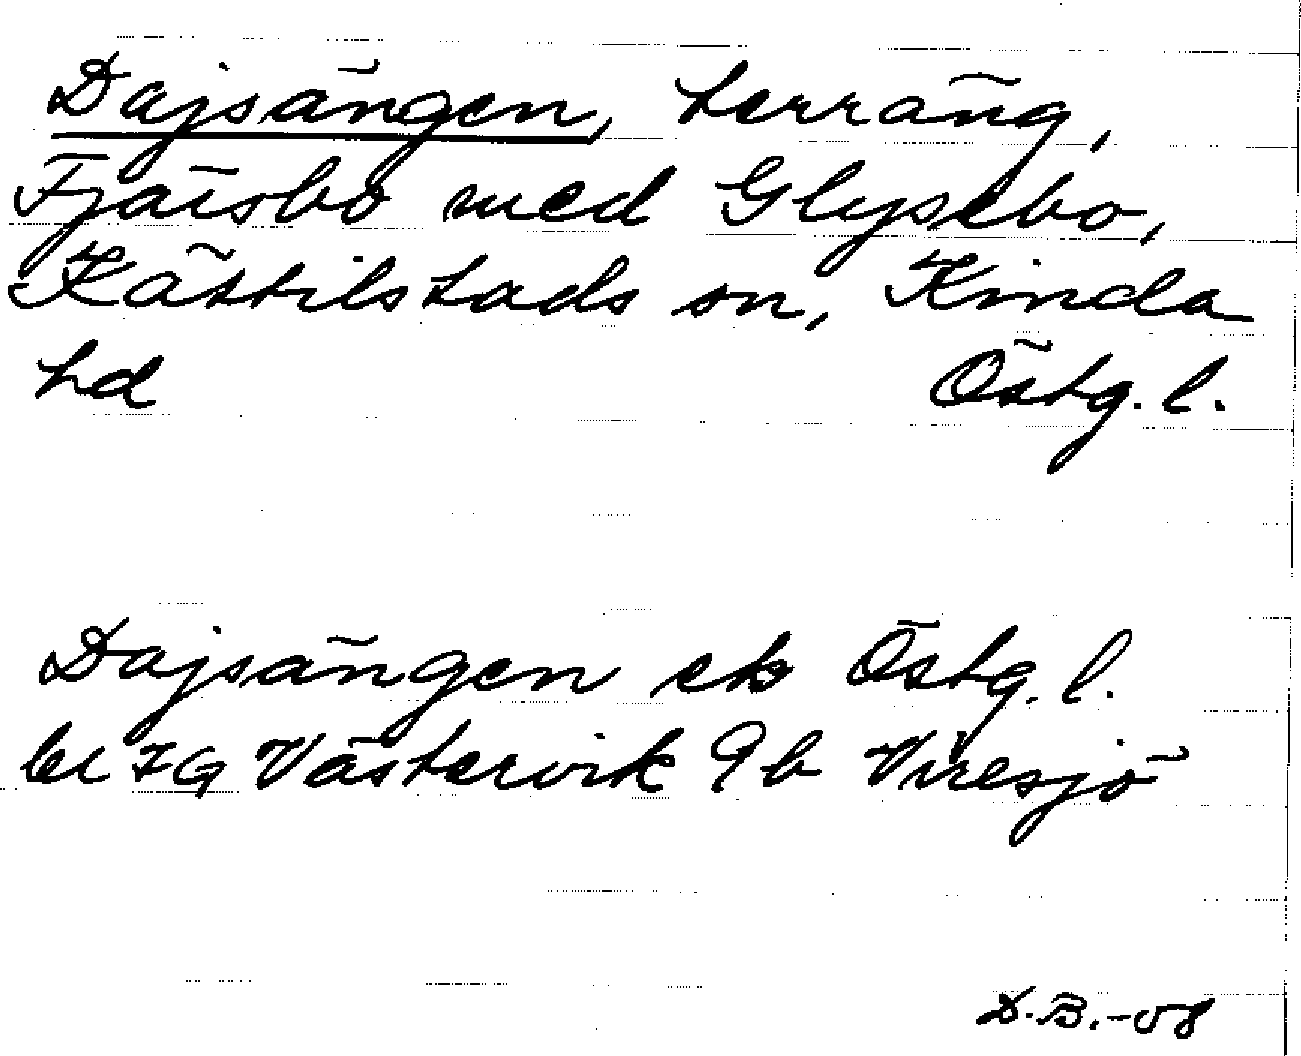 Dajsängen, terräng,
Fjärsbo med Glysebo,
Kättilstads sn, Kinda
hd Östg. l.
Dajsängen ek Östg. l.
bl 7G Västervik 9b Viresjö
D.B.-08